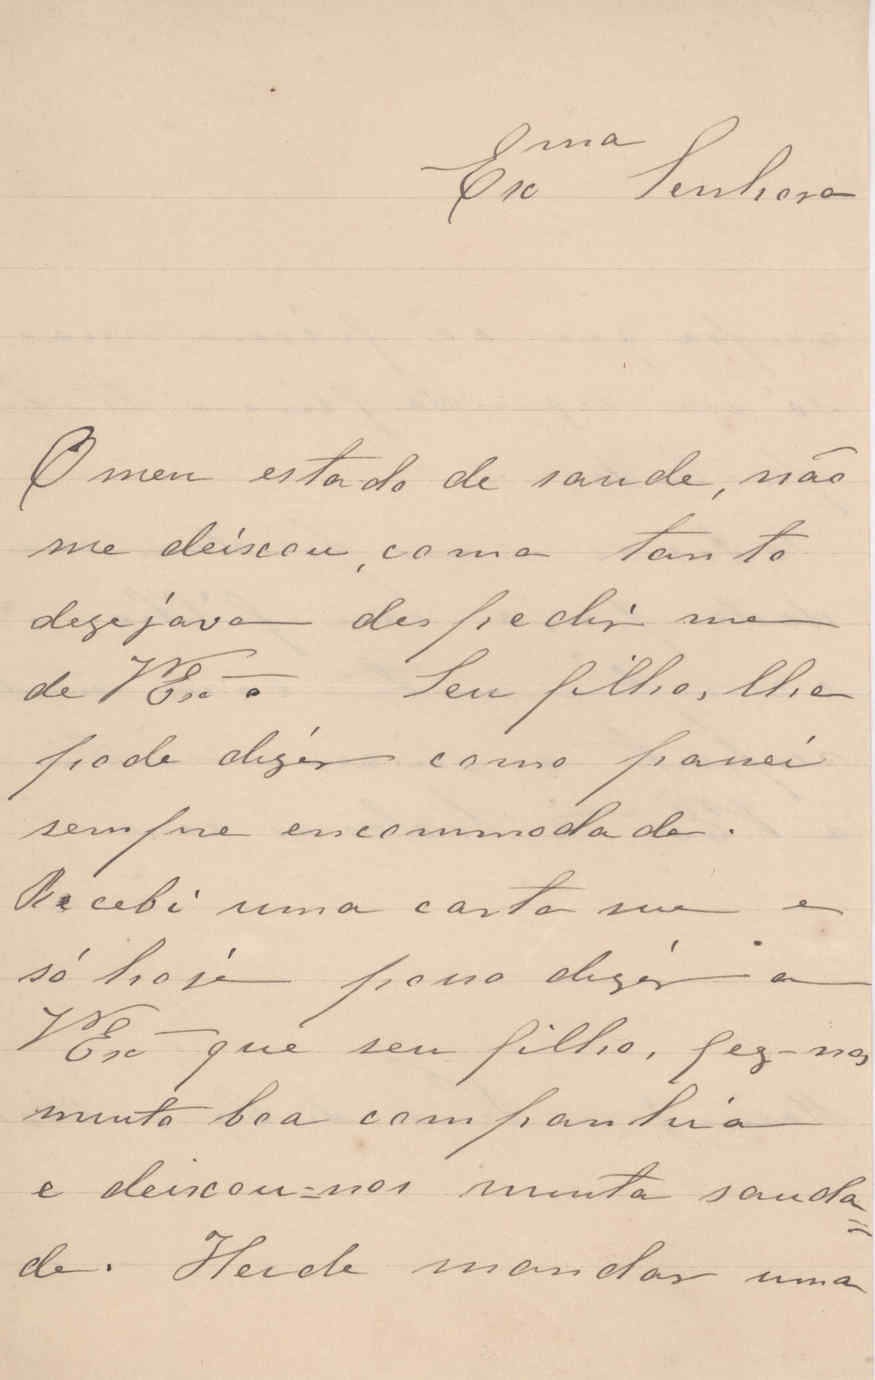 Exma Senhora
O meu estado de saude, não
me deixou, como tanto
dezejava despedir me
de VExa Seu filho, lhe
pode dizêr como passei
sempre encommodada.
Recebi uma carta sua e
só hoje posso dizêr a
VExa que seu filho, fez-nos
muito boa companhia
e deixou=nos muita sauda=
de. Heide mandar uma